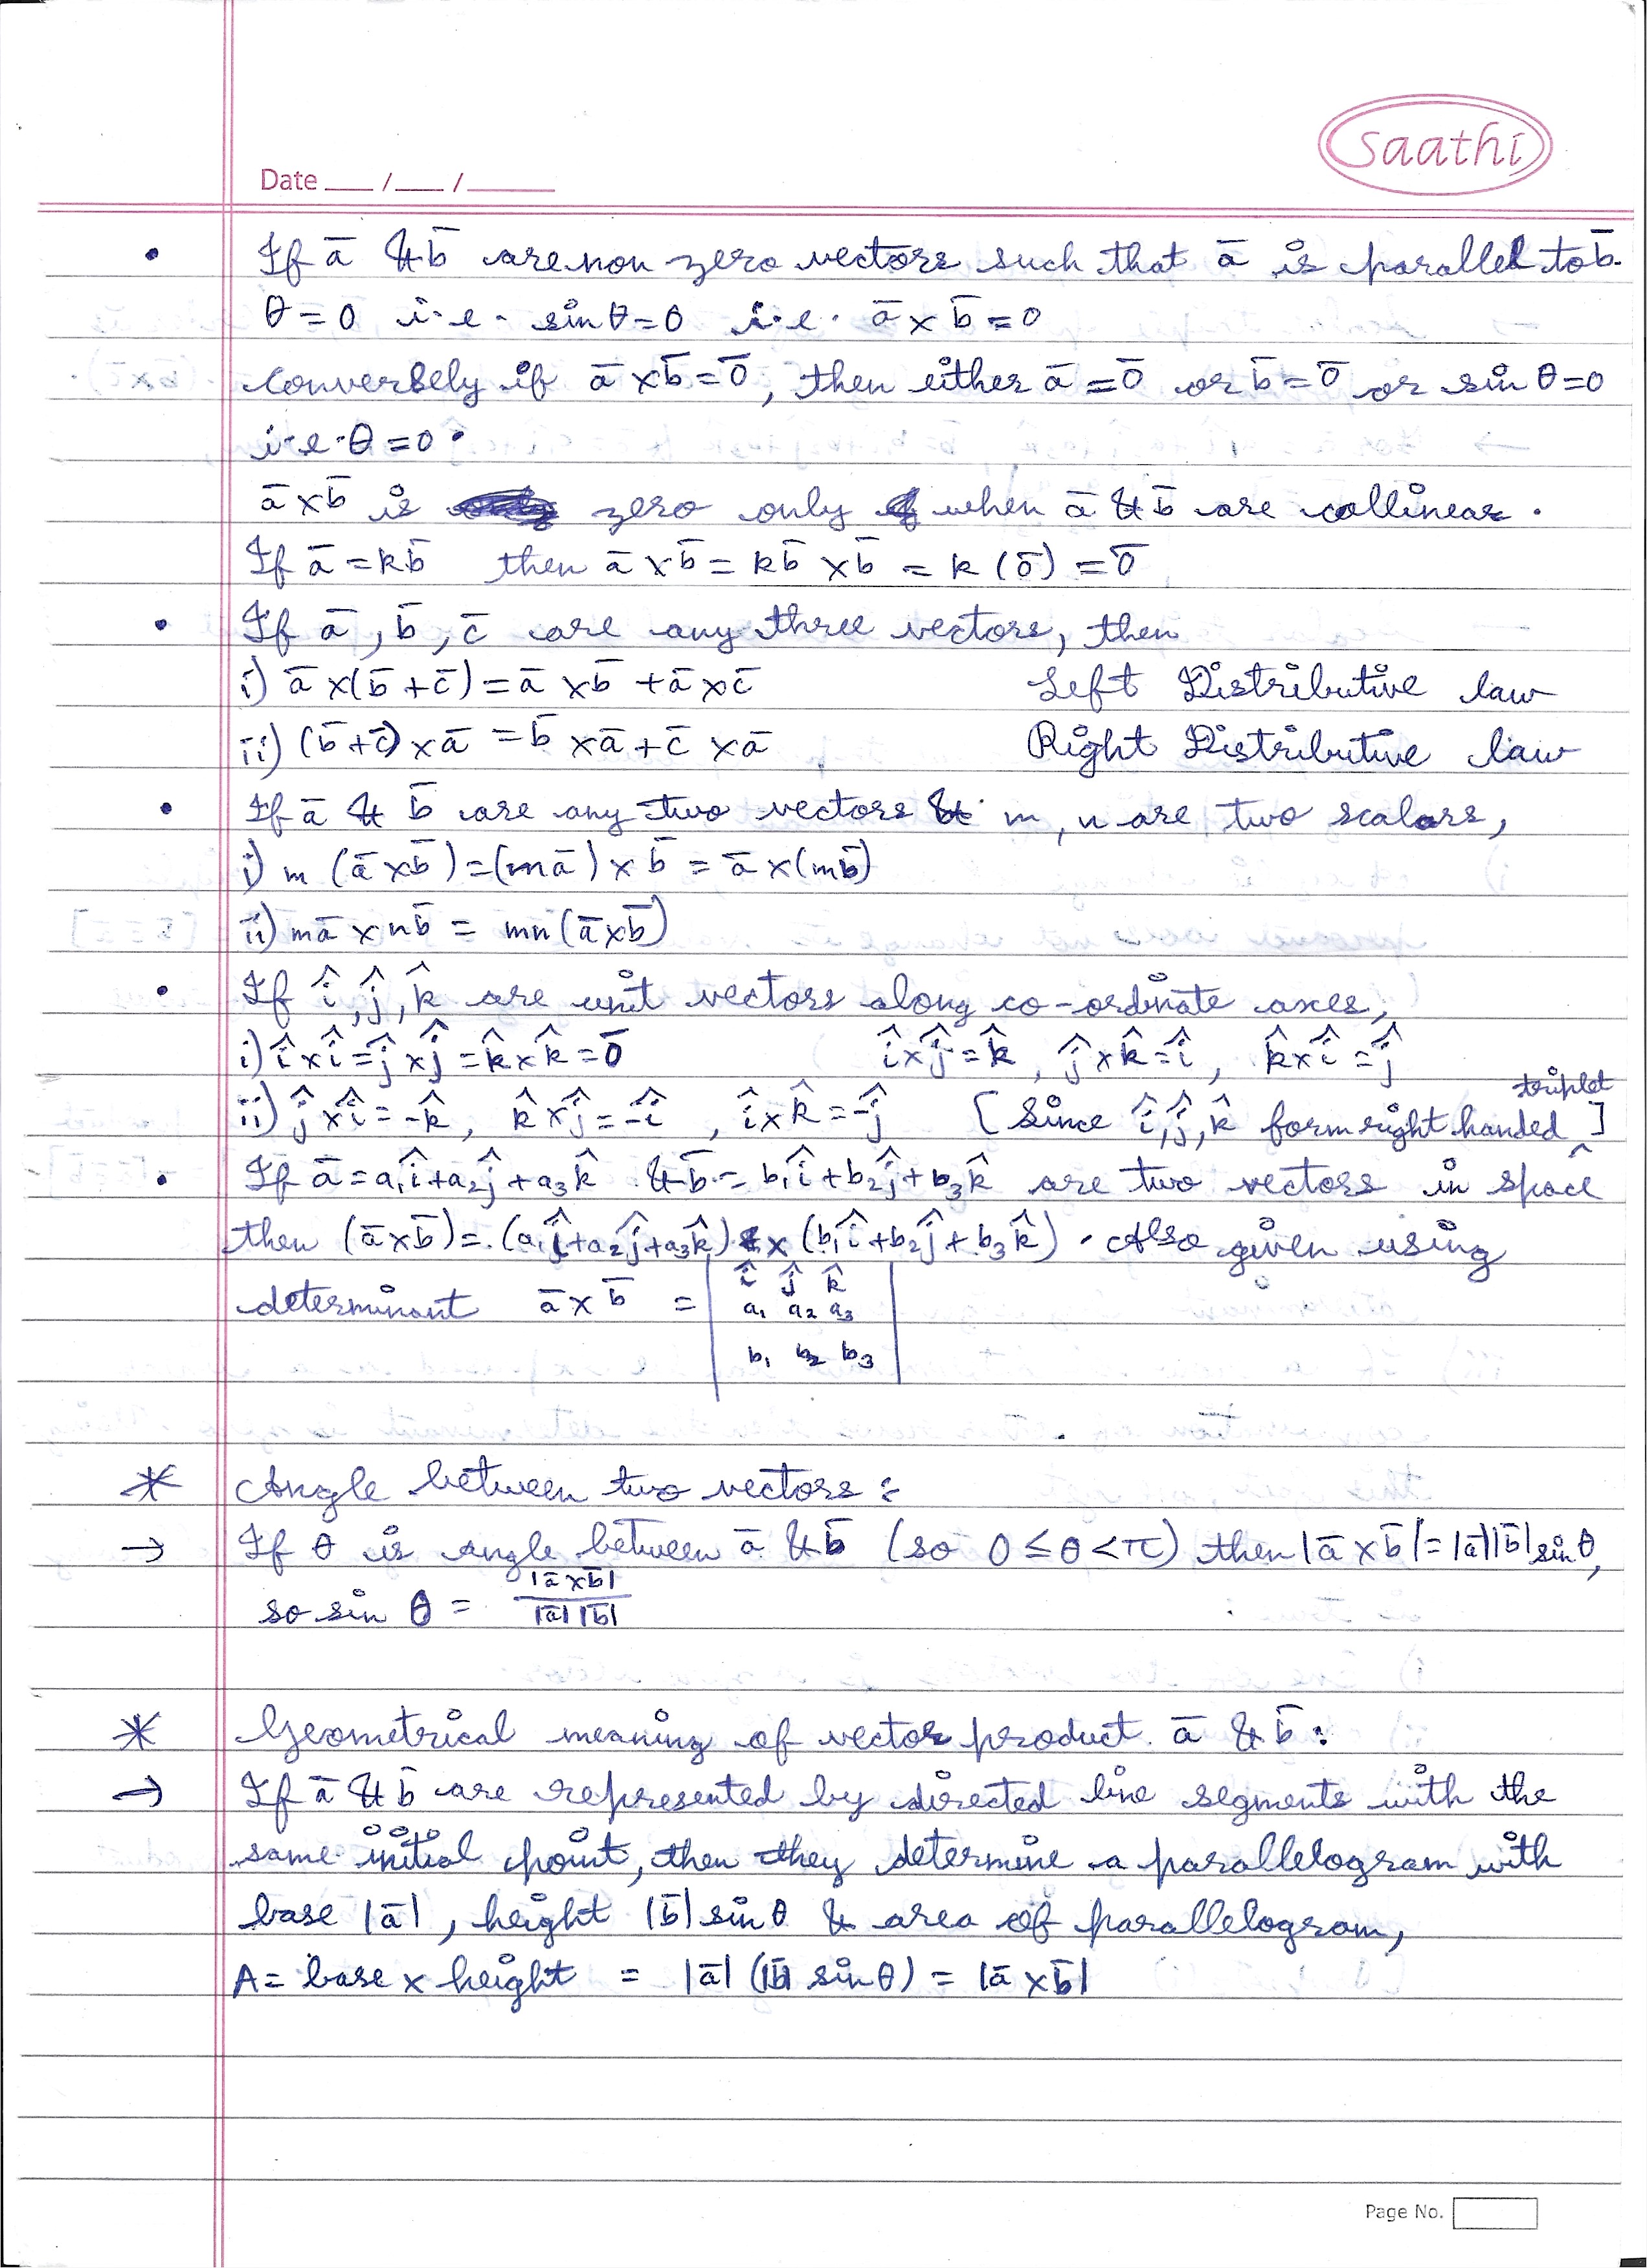 Saathi
Date ___ / ___ / ______
• If ā & b̄ are non zero vectors such that ā is parallel to b̄.
θ = 0 i.e. sin θ = 0 i.e. ā × b̄ = 0
Conversely if ā × b̄ = 0̄, then either ā = 0̄ or b̄ = 0̄ or sin θ = 0
i.e. θ = 0.
ā × b̄ is zero only when ā & b̄ are collinear.
If ā = kb̄ then ā × b̄ = kb̄ × b̄ = k (0̄) = 0̄
• If ā, b̄, c̄ are any three vectors, then
i) ā × (b̄ + c̄) = ā × b̄ + ā × c̄ Left Distributive law
ii) (b̄ + c̄) × ā = b̄ × ā + c̄ × ā Right Distributive law
• If ā & b̄ are any two vectors & m, n are two scalars,
i) m (ā × b̄) = (mā) × b̄ = ā × (mb̄)
ii) mā × nb̄ = mn (ā × b̄)
• If î, ĵ, k̂ are unit vectors along co-ordinate axes,
i) î × î = ĵ × ĵ = k̂ × k̂ = 0̄ î × ĵ = k̂, ĵ × k̂ = î, k̂ × î = ĵ
ii) ĵ × î = -k̂, k̂ × ĵ = -î, î × k̂ = -ĵ [Since î, ĵ, k̂ form right handed triplet]
• If ā = a₁î + a₂ĵ + a₃k̂ & b̄ = b₁î + b₂ĵ + b₃k̂ are two vectors in space
then (ā × b̄) = (a₁î + a₂ĵ + a₃k̂) × (b₁î + b₂ĵ + b₃k̂). Also given using
determinant ā × b̄ = | î ĵ k̂
a₁ a₂ a₃
b₁ b₂ b₃ |
* Angle between two vectors :
→ If θ is angle between ā & b̄ (so 0 ≤ θ < π) then |ā × b̄| = |ā||b̄| sin θ,
so sin θ = |ā × b̄| / |ā| |b̄|
* Geometrical meaning of vector product ā & b̄ :
→ If ā & b̄ are represented by directed line segments with the
same initial point, then they determine a parallelogram with
base |ā|, height |b̄| sin θ & area of parallelogram,
A = base × height = |ā| (|b̄| sin θ) = |ā × b̄|
Page No.